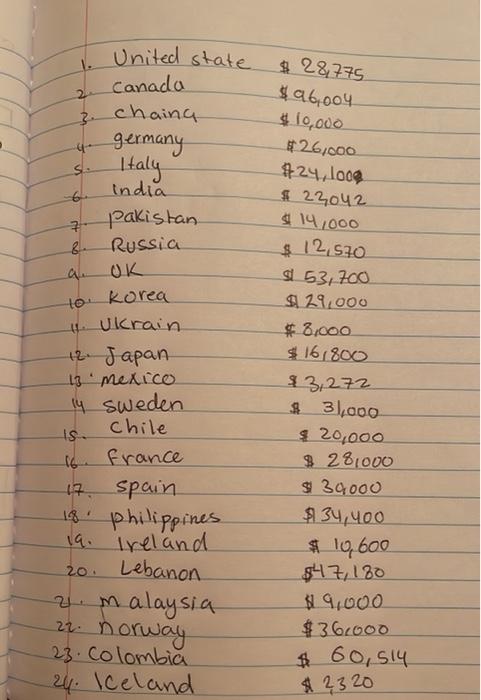 1. United state $ 28,775
2. Canada $96,004
3. chaina $10,000
4. germany $26,000
5. Italy $24,100
6. India $ 22,042
7. Pakistan $ 14,000
8. Russia $ 12,570
9. UK $ 53,700
10. Korea $ 29,000
11. UKrain $ 8,000
12. Japan $ 16,800
13. mexico $ 3,272
14 sweden $ 31,000
15. Chile $ 20,000
16. France $ 28,000
17. spain $ 30,000
18. philippines $ 34,400
19. Ireland $ 10,600
20. Lebanon $47,180
21. malaysia $ 9,000
22. norway $36,000
23. Colombia $ 60,514
24. Iceland $ 2,320